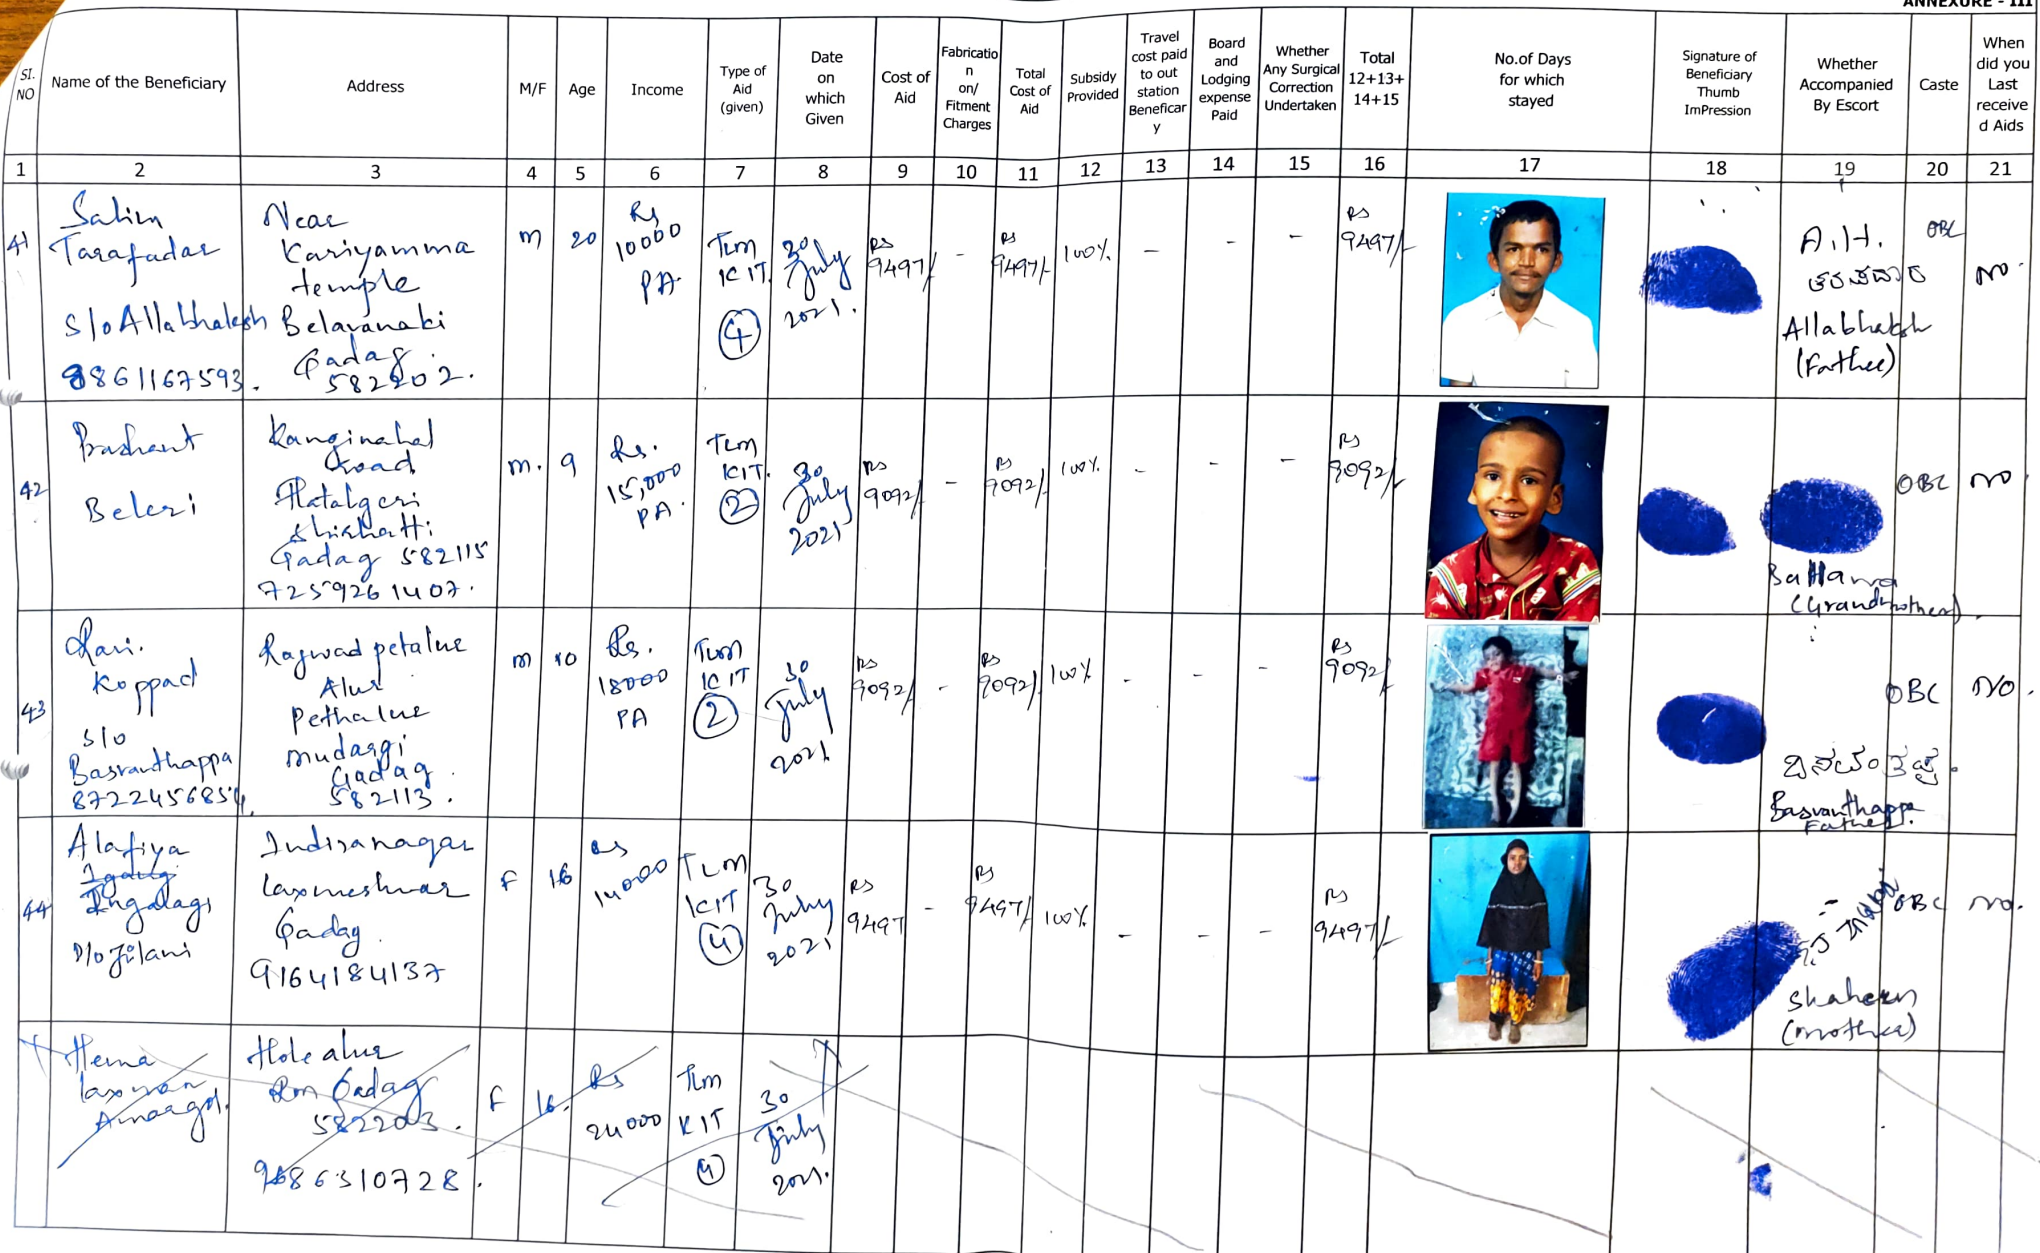 ANNEXURE - III
SI. NO
Name of the Beneficiary
Address
M/F
Age
Income
Type of Aid (given)
Date on which Given
Cost of Aid
Fabricatio n on/ Fitment Charges
Total Cost of Aid
Subsidy Provided
Travel cost paid to out station Beneficar y
Board and Lodging expense Paid
Whether Any Surgical Correction Undertaken
Total 12+13+ 14+15
No.of Days for which stayed
Signature of Beneficiary Thumb ImPression
Whether Accompanied By Escort
Caste
When did you Last receive d Aids
1 2 3 4 5 6 7 8 9 10 11 12 13 14 15 16 17 18 19 20 21
41
Salim
Tarafadar
S/o Allabhaksh
9861167593.
Near
Kariyamma
temple
Belavanaki
Gadag.
582202.
m
20
Rs
10000
PA.
TLM
KIT.
4
30
July
2021.
Rs
9497/-
-
Rs
9497/-
100%
-
-
-
Rs
9497/-
A.H.
ತರಫದಾರ
Allabhaksh
(Father)
OBC
NO.
42
Prashant
Beleri
Kanginahal
Road
Hatalgeri
Shirhatti
Gadag 582115
7259261407.
m.
9
Rs.
15,000
PA.
TLM
KIT.
2
30
July
2021
Rs
9092/-
-
Rs
9092/-
100%
-
-
-
Rs
9092/-
(Grandmother)
OBC
NO
43
Ravi.
Koppad
S/o
Basvanthappa
8722456854.
Ragwad petalur
Alur
Pethalur
mudargi
Gadag.
582113.
m
10
Rs.
18000
PA
TLM
KIT
2
30
July
2021
Rs
9092/-
-
Rs
9092/-
100%
-
-
-
Rs
9092/-
ಬಸವಂತಪ್ಪ.
Basvanthappa
Father.
OBC
NO.
44
Alafiya
Ingalagi
D/o Jilani
Indiranagar
Laxmeshwar
Gadag.
9164184137
F
16
Rs
14000
TLM
KIT
4
30
July
2021
Rs
9497
-
Rs
9497/-
100%
-
-
-
Rs
9497/-
Shaheen
(mother)
OBC
NO.
Hema
laxman
Amargol.
Hole alur
Ron Gadag
582203.
9686310728.
F
16.
Rs
24000
TLM
KIT
4
30
July
2021.